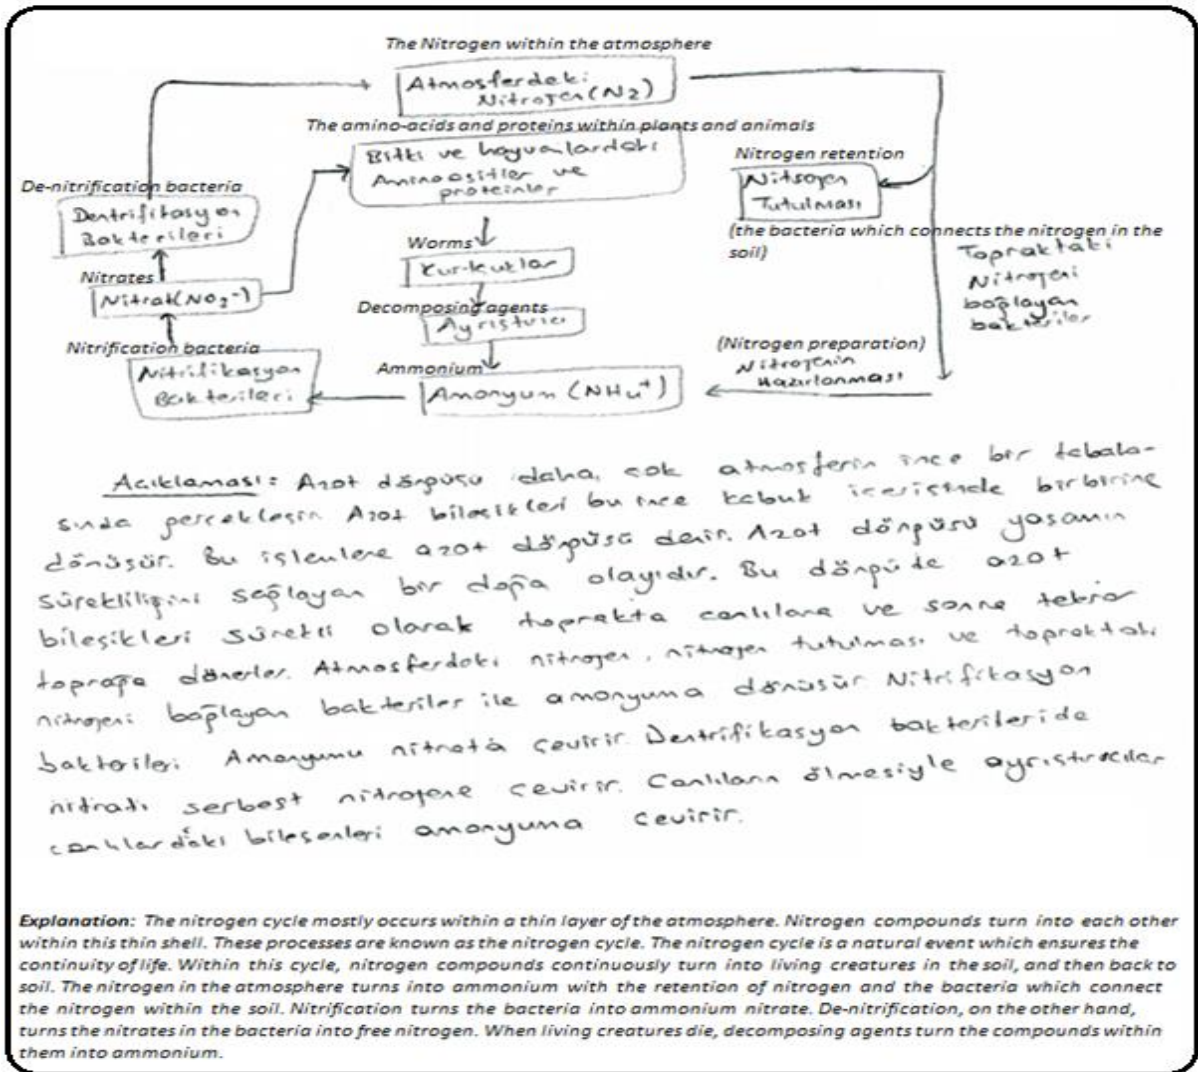 The Nitrogen within the atmosphere
Atmosferdeki
Nitrojen (N2)
The amino-acids and proteins within plants and animals
Bitki ve hayvanlardaki
Aminoasitler ve
proteinler
Nitrogen retention
Nitrojen
Tutulması
(the bacteria which connects the nitrogen in the
soil)
Topraktaki
Nitrojeni
bağlayan
bakteriler
De-nitrification bacteria
Dentrifikasyon
Bakterileri
Worms
Nitrates
Nitrat(NO2-)
Decomposing agents
Ayrıştırıcı
Nitrification bacteria
Nitrifikasyon
Bakterileri
Ammonium
Amonyum (NH4+)
(Nitrogen preparation)
Nitrojenin
Hazırlanması
Acıklaması: Azot döngüsü daha, cok atmosferin ince bir tabaka-
sında gercekleşir. Azot bileşikleri bu ince kabuk icerisinde birbirine
dönüşür. Bu işlemlere azot döngüsü denir. Azot döngüsü yaşamın
sürekliliğini sağlayan bir doğa olayıdır. Bu döngüde azot
bileşikleri sürekli olarak toprakta canlılara ve sonra tekrar
toprağa dönerler. Atmosferdeki nitrojen, nitrojen tutulması ve topraktaki
nitrojeni bağlayan bakteriler ile amonyuma dönüşür Nitrifikasyon
bakterileri Amonyumu nitrata cevirir. Dentrifikasyon bakterileride
nitratı serbest nitrojene cevirir. Canlıların ölmesiyle ayrıştırıcılar
canlılardaki bileşenleri amonyuma cevirir.
Explanation: The nitrogen cycle mostly occurs within a thin layer of the atmosphere. Nitrogen compounds turn into each other
within this thin shell. These processes are known as the nitrogen cycle. The nitrogen cycle is a natural event which ensures the
continuity of life. Within this cycle, nitrogen compounds continuously turn into living creatures in the soil, and then back to
soil. The nitrogen in the atmosphere turns into ammonium with the retention of nitrogen and the bacteria which connect
the nitrogen within the soil. Nitrification turns the bacteria into ammonium nitrate. De-nitrification, on the other hand,
turns the nitrates in the bacteria into free nitrogen. When living creatures die, decomposing agents turn the compounds within
them into ammonium.